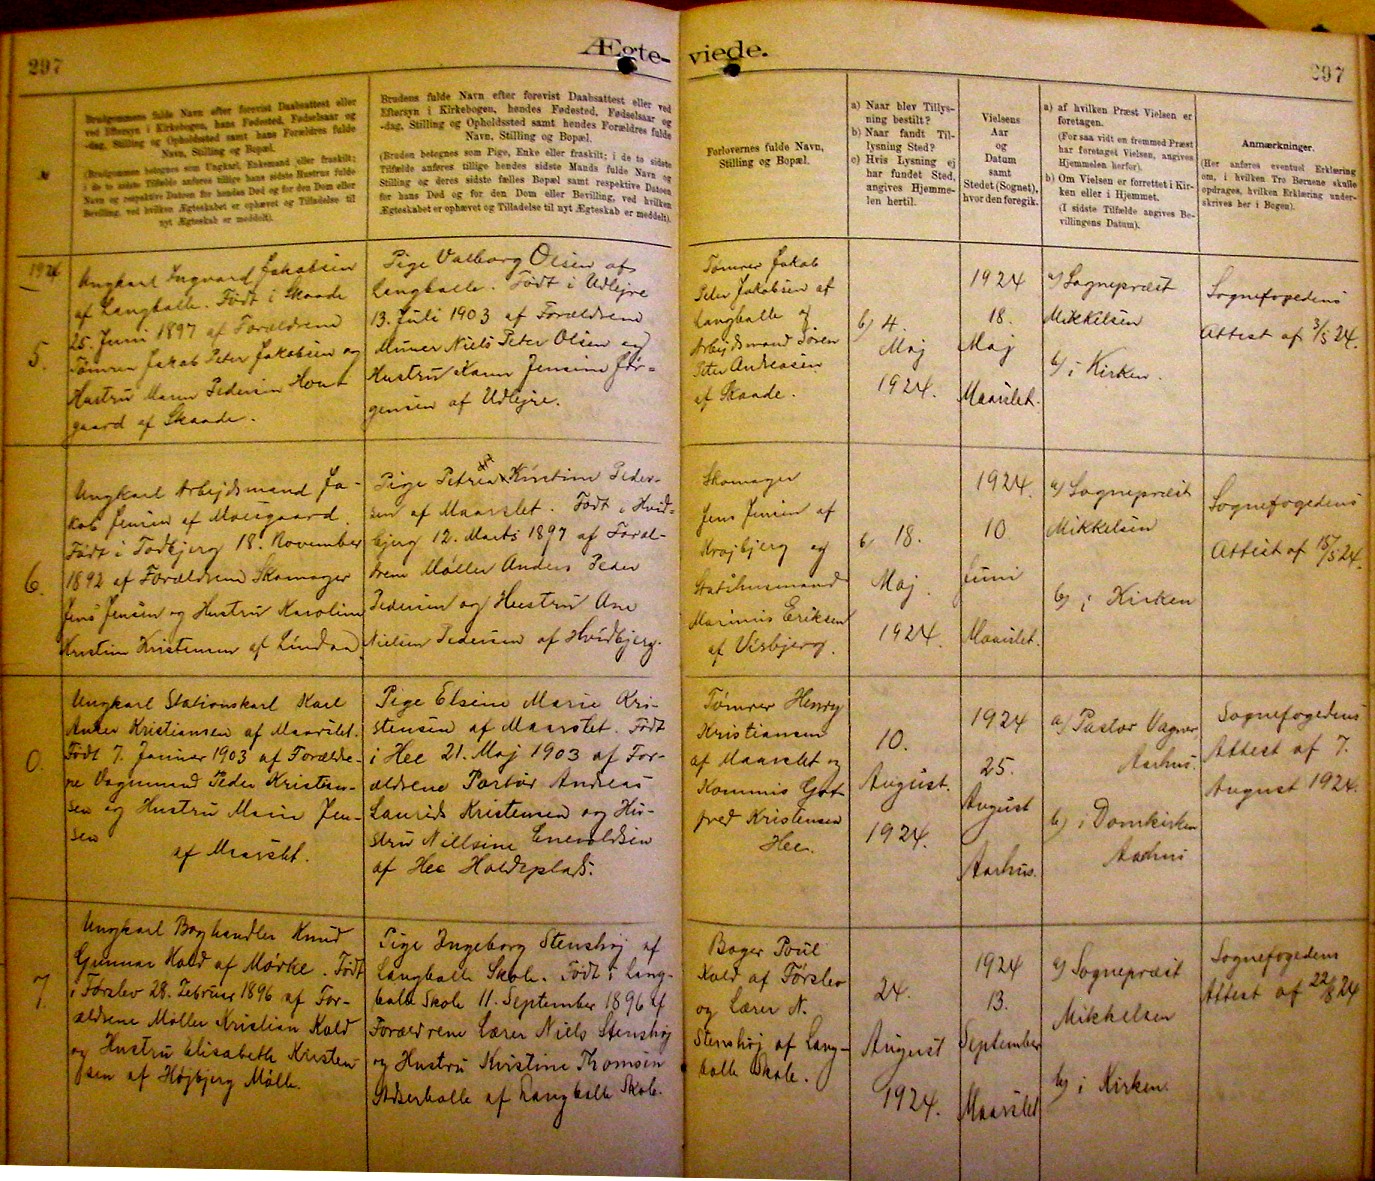 297
Ægte-
viede.
297
Brudgommens fulde Navn efter forevist Daabsattest eller
ved Eftersyn i Kirkebogen, hans Fødested, Fødselsaar og
-dag, Stilling og Opholdssted samt hans Forældres fulde
Navn, Stilling og Bopæl.
(Brudgommen betegnes som Ungkarl, Enkemand eller fraskilt;
i de to sidste Tilfælde anføres tillige hans sidste Hustrus fulde
Navn og respektive Datoen for hendes Død og for den Dom eller
Bevilling, ved hvilken Ægteskabet er ophævet og Tilladelse til
nyt Ægteskab er meddelt).
Brudens fulde Navn efter forevist Daabsattest eller ved
Eftersyn i Kirkebogen, hendes Fødested, Fødselsaar og
-dag, Stilling og Opholdssted samt hendes Forældres fulde
Navn, Stilling og Bopæl.
(Bruden betegnes som Pige, Enke eller fraskilt; i de to sidste
Tilfælde anføres tillige hendes sidste Mands fulde Navn og
Stilling og deres sidste fælles Bopæl samt respektive Datoen
for hans Død og for den Dom eller Bevilling, ved hvilken
Ægteskabet er ophævet og Tilladelse til nyt Ægteskab er meddelt).
Forlovernes fulde Navn,
Stilling og Bopæl.
a) Naar blev Tillys-
ning bestilt?
b) Naar fandt Til-
lysning Sted?
c) Hvis Lysning ej
har fundet Sted,
angives Hjemme-
len hertil.
Vielsens
Aar
og
Datum
samt
Stedet (Sognet),
hvor den foregik.
a) af hvilken Præst Vielsen er
foretagen.
(For saa vidt en fremmed Præst
har foretaget Vielsen, angives
Hjemmelen herfor).
b) Om Vielsen er forrettet i Kir-
ken eller i Hjemmet.
(I sidste Tilfælde angives Be-
villingens Datum).
Anmærkninger.
(Her anføres eventuel Erklæring
om, i hvilken Tro Børnene skulle
opdrages, hvilken Erklæring under-
skrives her i Bogen).
1924
5.
Ungkarl Ingvard Jakobsen
af Langballe. Født i Skaade
25. Juni 1897 af Forældrene
Tømrer Jakob Peter Jakobsen og
Hustru Maren Pedersen Hout
gaard af Skaade.
Pige Valborg Olsen af
Langballe. Født i Udlejre
13. Juli 1903 af Forældrene
Murer Niels Peter Olsen og
Hustru Karen Jensine Jør-
gensen af Udlejre.
Tømrer Jakob
Peter Jakobsen af
Langballe og
Arbejdsmand Søren
Peter Andreasen
af Skaade.
b) 4.
Maj
1924.
1924
18.
Maj
Maarslet.
a) Sognepræst
Mikkelsen
b) i Kirken.
Sognefogedens
Attest af 3/5 24.
6.
Ungkarl Arbejdsmand Ja-
kob Jensen af Moesgaard.
Født i Todbjerg 18. November
1892 af Forældrene Skomager
Jens Jensen og Hustru Karoline
Kristine Kristensen af Lindaa.
Pige Petrea Kirstine Peder-
sen af Maarslet. Født i Hvid-
bjerg 12. Marts 1897 af Foræl-
drene Møller Anders Peder
Pedersen og Hustru Ane
Nielsen Pedersen af Hvidbjerg.
Skomager
Jens Jensen af
Krajbjerg og
Statshusmand
Marinus Eriksen
af Visbjerg.
b) 18.
Maj.
1924.
1924.
10
Juni
Maarslet.
a) Sognepræst
Mikkelsen
b) i Kirken
Sognefogedens
Attest af 15/5 24.
0.
Ungkarl Stationskarl Karl
Anker Kristiansen af Maarslet.
Født 7. Januar 1903 af Forældre-
ne Vognmand Peder Kristian-
sen og Hustru Marie Jen-
sen
af Maarslet.
Pige Elsine Marie Kri-
stensen af Maarslet. Født
i Hee 21. Maj 1903 af For-
ældrene Portør Andreas
Laurids Kristensen og Hu-
stru Nielsine Enevoldsen
af Hee Holdeplads.
Tømrer Henry
Kristiansen
af Maarslet og
Kommis Got-
fred Kristensen
Hee.
10.
August.
1924.
1924
25.
August
Aarhus.
a) Pastor Vagner
Aarhus.
b) i Domkirken
Aarhus
Sognefogedens
Attest af 7.
August 1924.
7.
Ungkarl Boghandler Knud
Gunnar Kold af Mørke. Født
i Førslev 28. Februar 1896 af For-
ældrene Møller Kristian Kold
og Hustru Elisabeth Kirsten
sen af Højbjerg Mølle.
Pige Ingeborg Stenshøj af
Langballe Skole. Født i Lang-
balle Skole 11. September 1896 af
Forældrene Lærer Niels Stenshøj
og Hustru Kristine Thomsen
af Langballe Skole.
Bager Poul
Kold af Førslev
og Lærer N.
Stenshøj af Lang-
balle Skole.
24.
August
1924.
1924
13.
September
Maarslet
a) Sognepræst
Mikkelsen
b) i Kirken.
Sognefogedens
Attest af 22/8 24